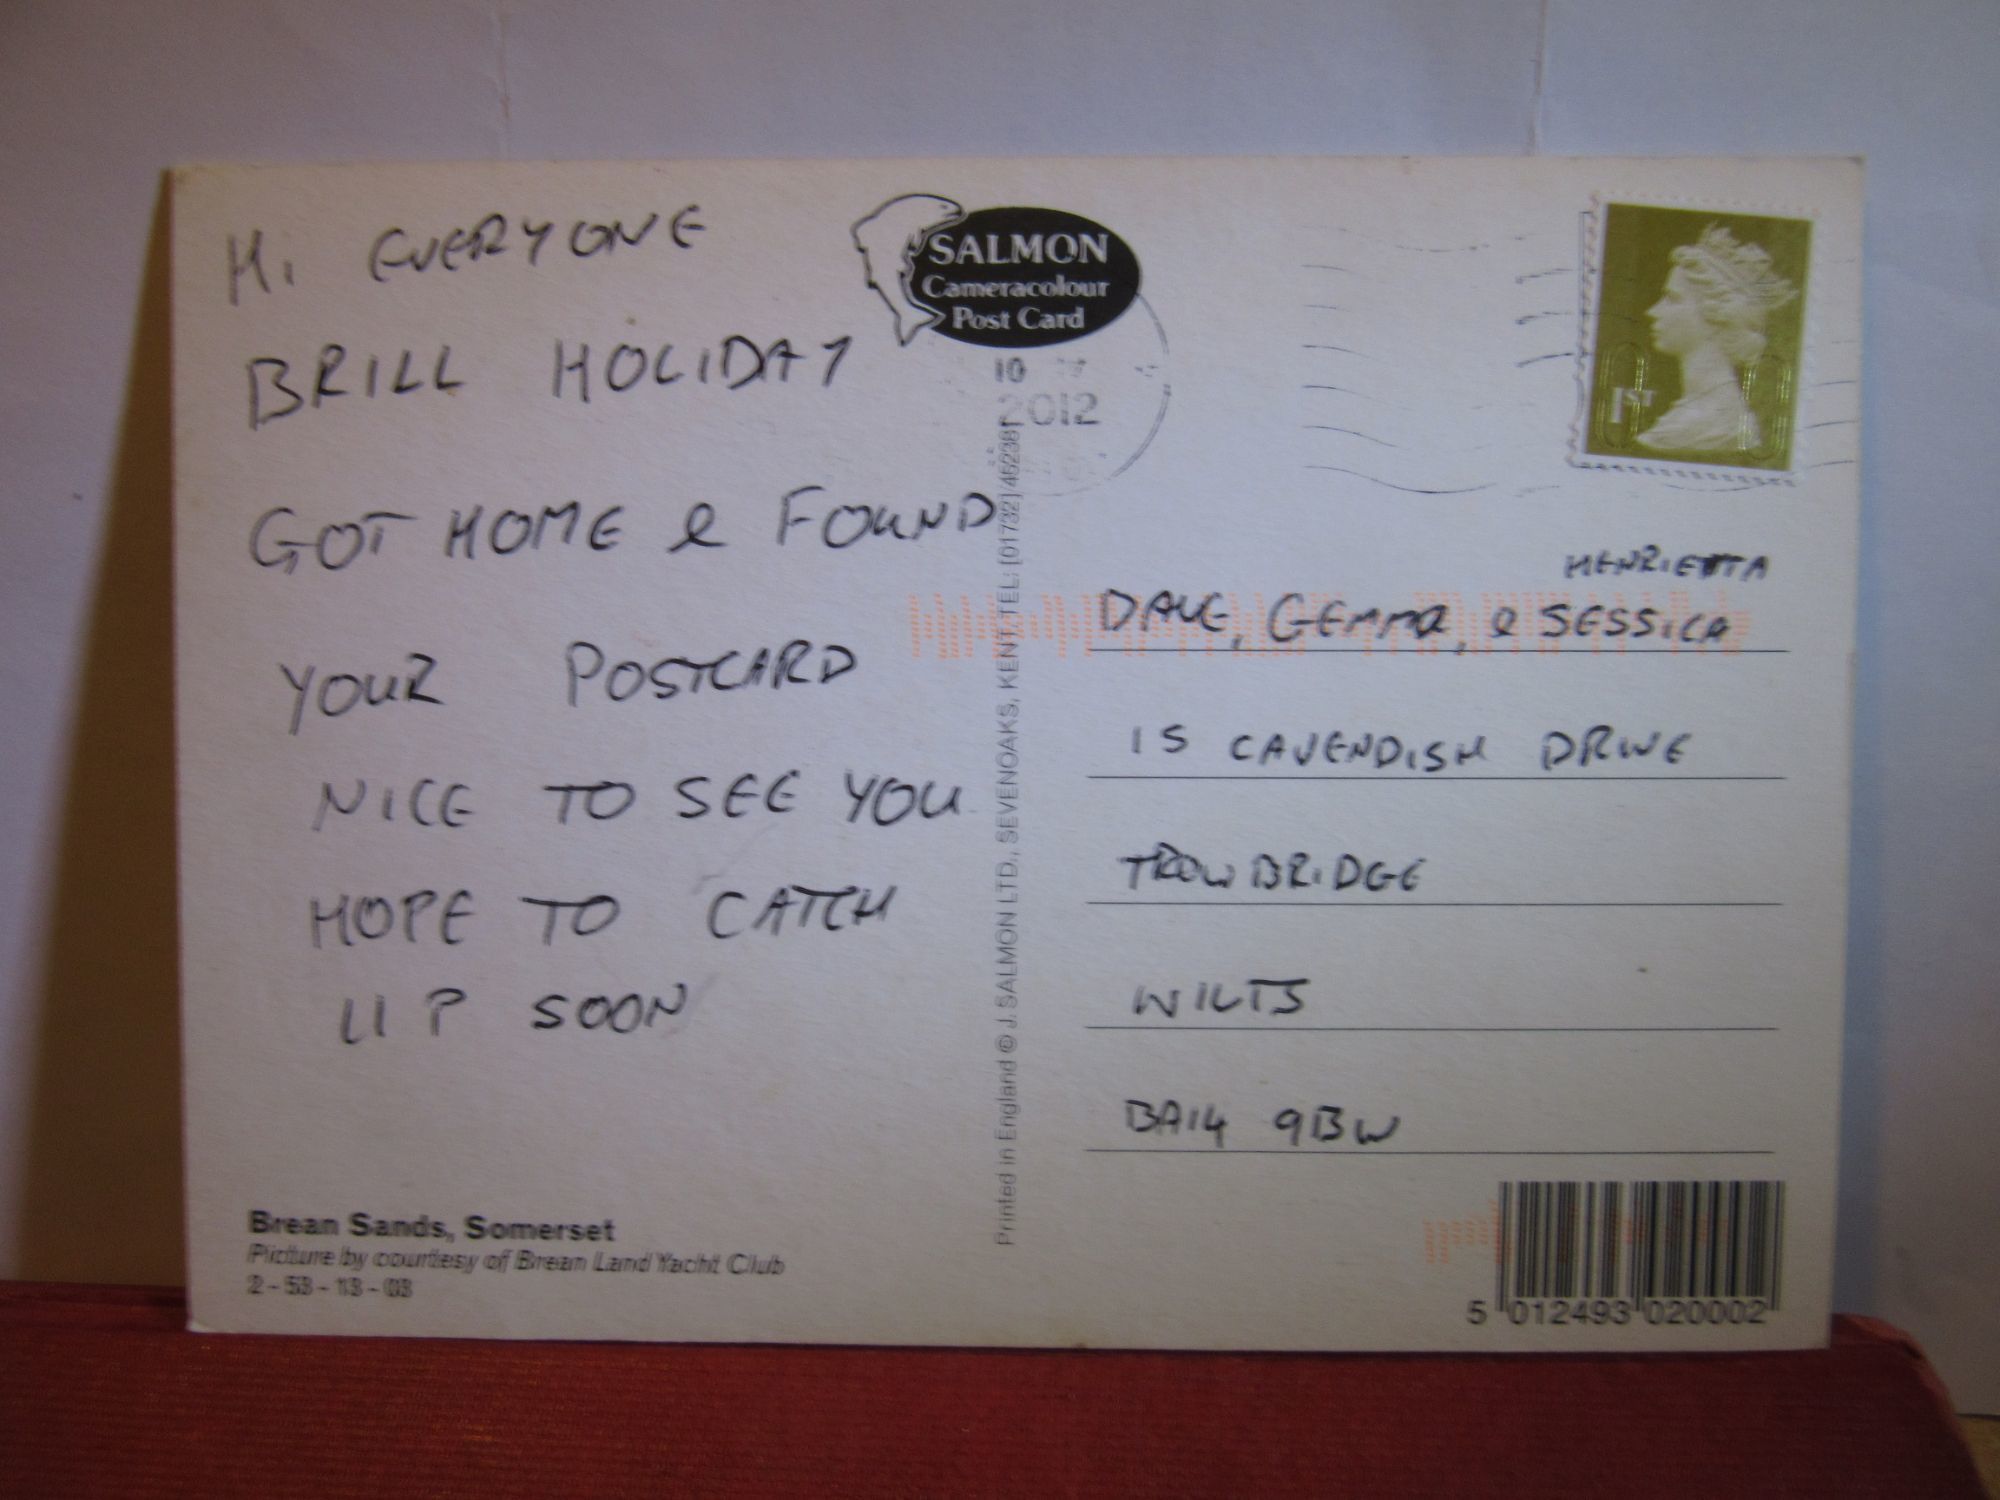 Hi EVERYONE
BRILL HOLIDAY
GOT HOME & FOUND
YOUR POSTCARD
NICE TO SEE YOU
HOPE TO CATCH
UP SOON
Brean Sands, Somerset
Picture by courtesy of Brean Land Yacht Club
2 - 53 - 13 - 03
SALMON
Cameracolour
Post Card
10
2012
Printed in England © J. SALMON LTD., SEVENOAKS, KENT. TEL: (01732) 452381
1ST
HENRIETTA
DAVE, GEMMA, & SESSICA
15 CAVENDISH DRIVE
TROWBRIDGE
WILTS
BA14 9BW
5 012493 020002